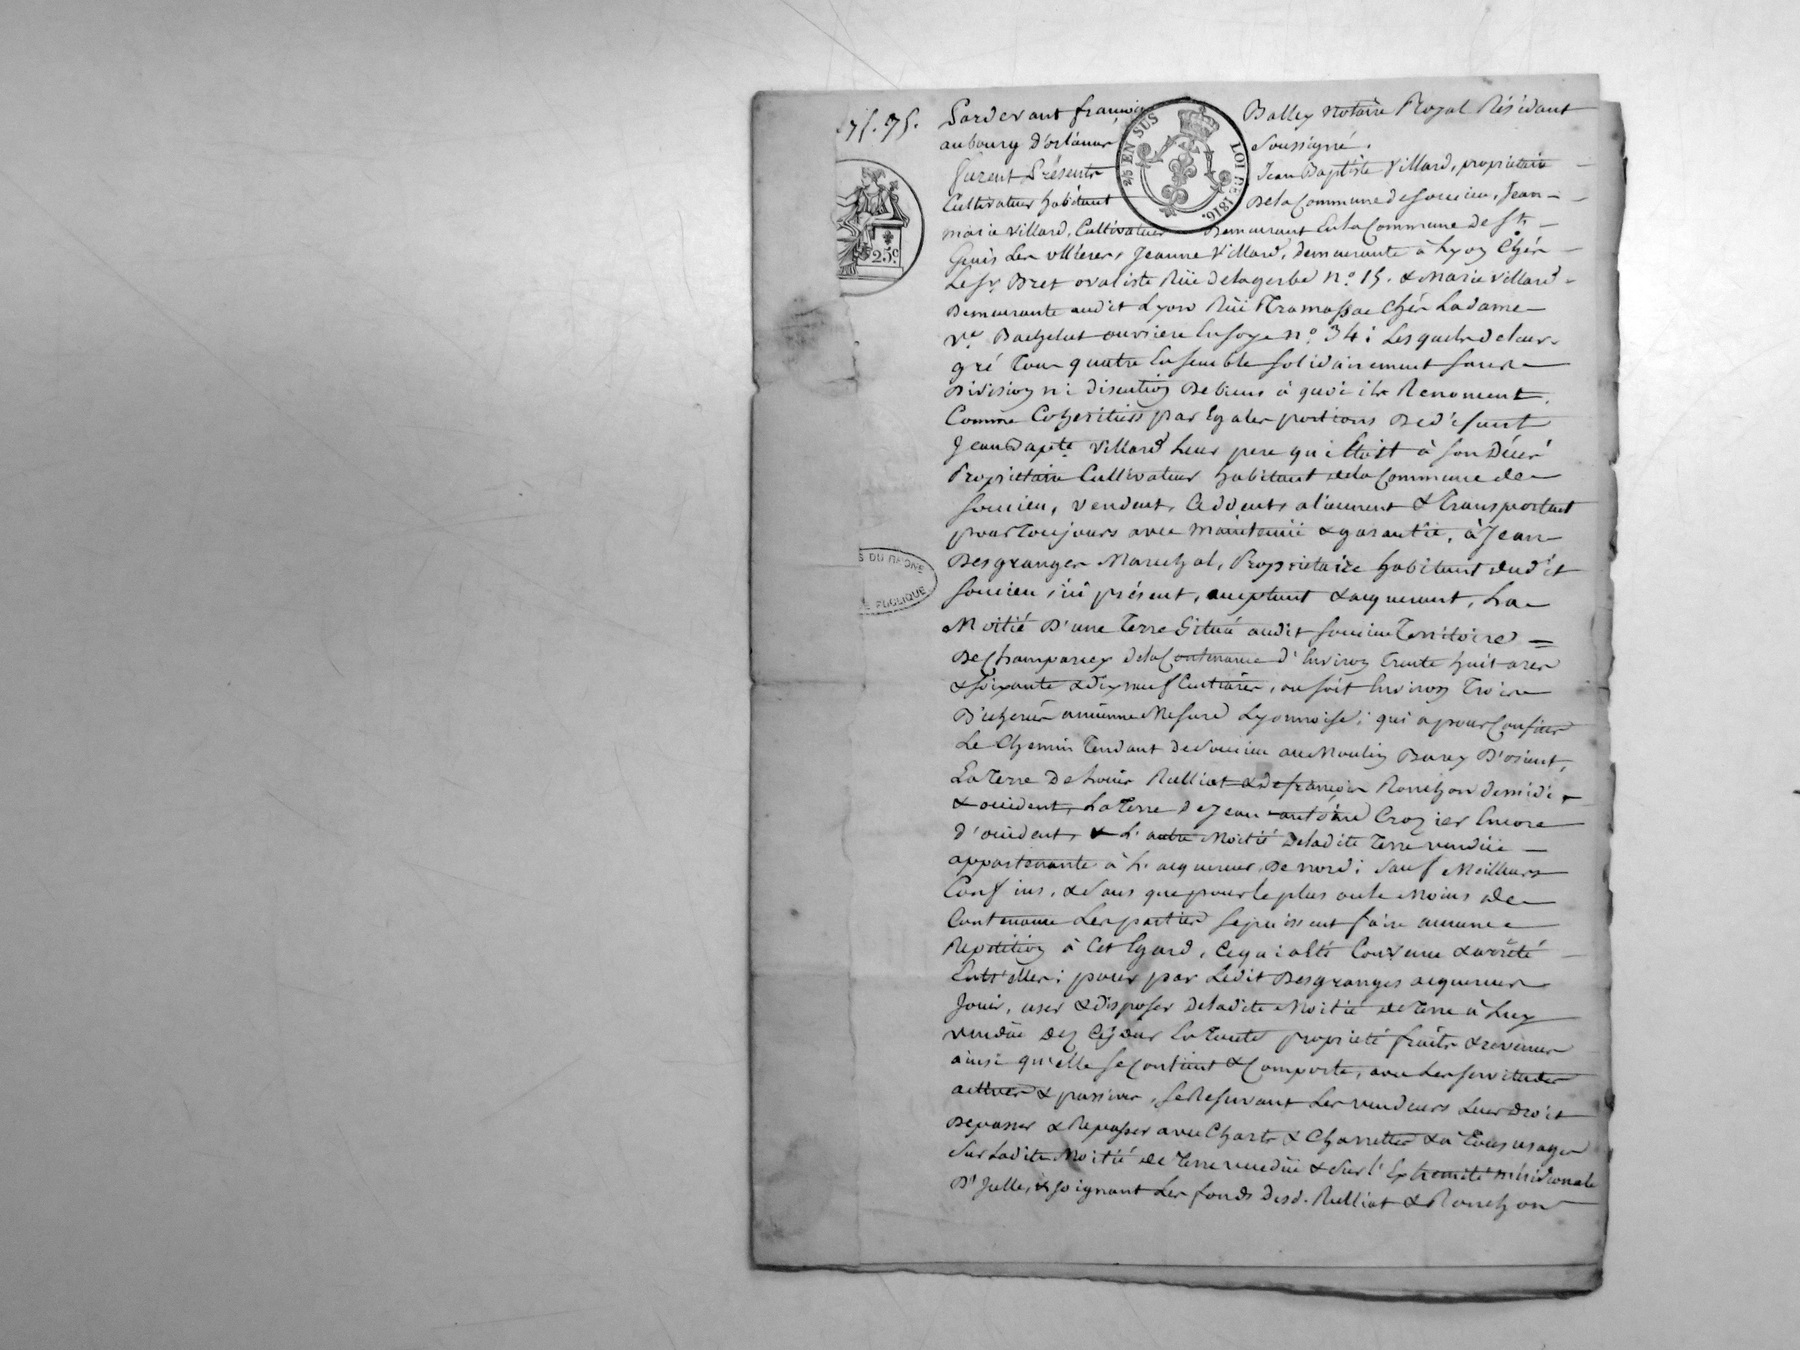 75. 75.
Pardevant françois Balley Notaire Royal Résidant
aubourg d'orliénas Soussigné.
furent Présents Jean Baptiste Villard, propriétaire
Cultivateur habitant De la Commune de soucieu, Jean
marie villard, Cultivateur Demeurant En la Commune de St
Genis Les ollieres, Jeanne Villard, demeurante à Lyon Chéz
Le Sr. Bret ovaliste Rüe de la gerbe no. 15. & Marie villard
Demeurante audit Lyon Rüe Tramassac Chéz La dame
Ve. Bachelut ouvriere En soye no. 34: Lesquels de leur
gré Tous quatre Ensemble solidairement sans
Division ni discution De biens à quoi ils Renoncent,
Comme Cohéritiers par Egales portions De défunt
Jean Bapte. villard Leur pere qui Etoit à son Décés
Propriétaire Cultivateur habitant de la Commune de
soucieu, vendent, Cèddent, aliennent & transportent
pour Toujours avec maintenüe & garantie, à Jean
Desgranges Marechal, Propriétaire habitant dudit
soucieu, ici présent, acceptant & acquerant, La
Moitié D'une Terre Située audit soucieu Territoire
De Champaney de la Contenance d'Environ Trente huit ares
& soixante & dix neuf Centiares, ou soit Environ Trois
Bicherées ancienne Mesure Lyonnoise; qui a pour Confins
Le Chemin Tendant de soucieu au Moulin Barey D'orient,
La Terre De Louis Rulliat & de françois Ronchon de midi
& occident, La Terre De Jean antoine Crozier Encore
d'occident, & L'autre Moitié De ladite Terre vendüe
appartenante à L'acquereur, De nord; sauf Meilleurs
Confins, & sans que pour le plus ou le Moins de
Contenance Les parties se puissent faire aucune
Repétition à Cet Egard, Ce qui a Eté Convenu & arrêté
Entr'elles; pour par Ledit Desgranges acquereur
Jouir, user & disposer De ladite Moitié de Terre à Luy
vendüe Dez Cejour En Toute propriété fruits & revenus
ainsi qu'elle se Contient & Comporte, avec Les servitudes
actives & passives, se Reservant Les vendeurs Leur droit
De passer & Repasser avec Chars & Charrettes & à Tous usages
sur Ladite Moitié de Terre vendüe & sur l'Extremité méridionale
D'Jcelle, & joignant Les fonds Desd. Rulliat & Ronchon
2/5 EN SUS LOI DE 1816.
25c
S DU RHONE
E PUBLIQUE